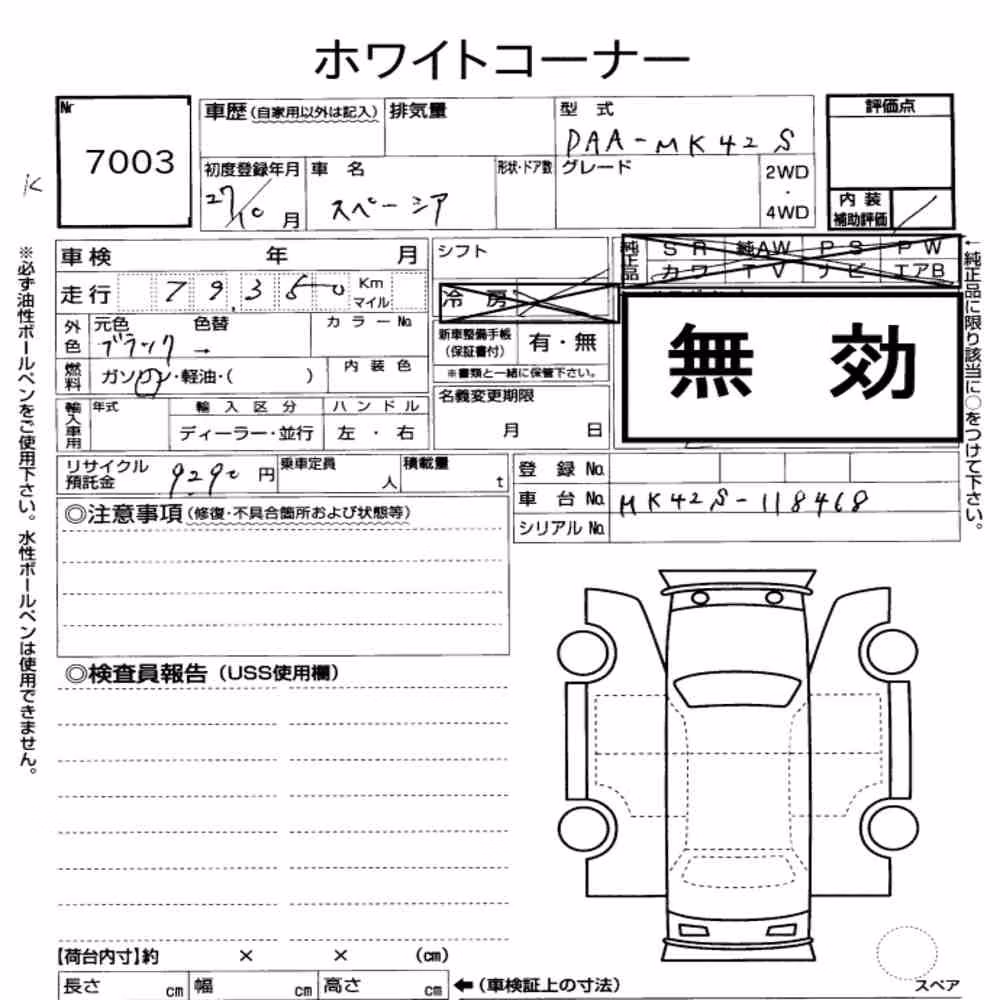 ホワイトコーナー
Nr
7003
K
車歴(自家用以外は記入)
排気量
型式
DAA-MK42S
評価点
初度登録年月
27/10月
車名
スペーシア
形状・ドア数
グレード
2WD
・
4WD
内装
補助評価
車検 年 月
走行 79350 Km
マイル
外色 元色 色替 カラーNo.
ブラック →
燃料 ガソリン・軽油・( ) 内装色
輸入車用 年式 輸入区分 ハンドル
ディーラー・並行 左・右
シフト
冷房
新車整備手帳
(保証書付)
有・無
※書類と一緒に保管下さい。
名義変更期限
月 日
純正品 SR 純AW PS PW
カワ TV ナビ エアB
無効
リサイクル
預託金
9290円
乗車定員 人
積載量 t
登録No.
車台No. MK42S-118468
シリアルNo.
◎注意事項(修復・不具合箇所および状態等)
◎検査員報告(USS使用欄)
※必ず油性ボールペンをご使用下さい。水性ボールペンは使用できません。
←純正品に限り該当に○をつけて下さい。
【荷台内寸】約 × × (cm)
長さ cm 幅 cm 高さ cm ←(車検証上の寸法)
スペア